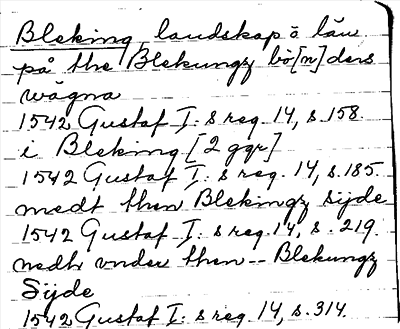 Bleking landskap o län
på the Blekungz bö[n]ders
wägna
1542 Gustaf I:s reg. 14, s. 158.
i Bleking [2 ggr]
1542 Gustaf I:s reg. 14, s. 185.
medt then Blekingz sijde
1542 Gustaf I:s reg. 14, s. 219.
nedh vnder then -- Blekungz
Sijde
1542 Gustaf I:s reg. 14, s. 314.